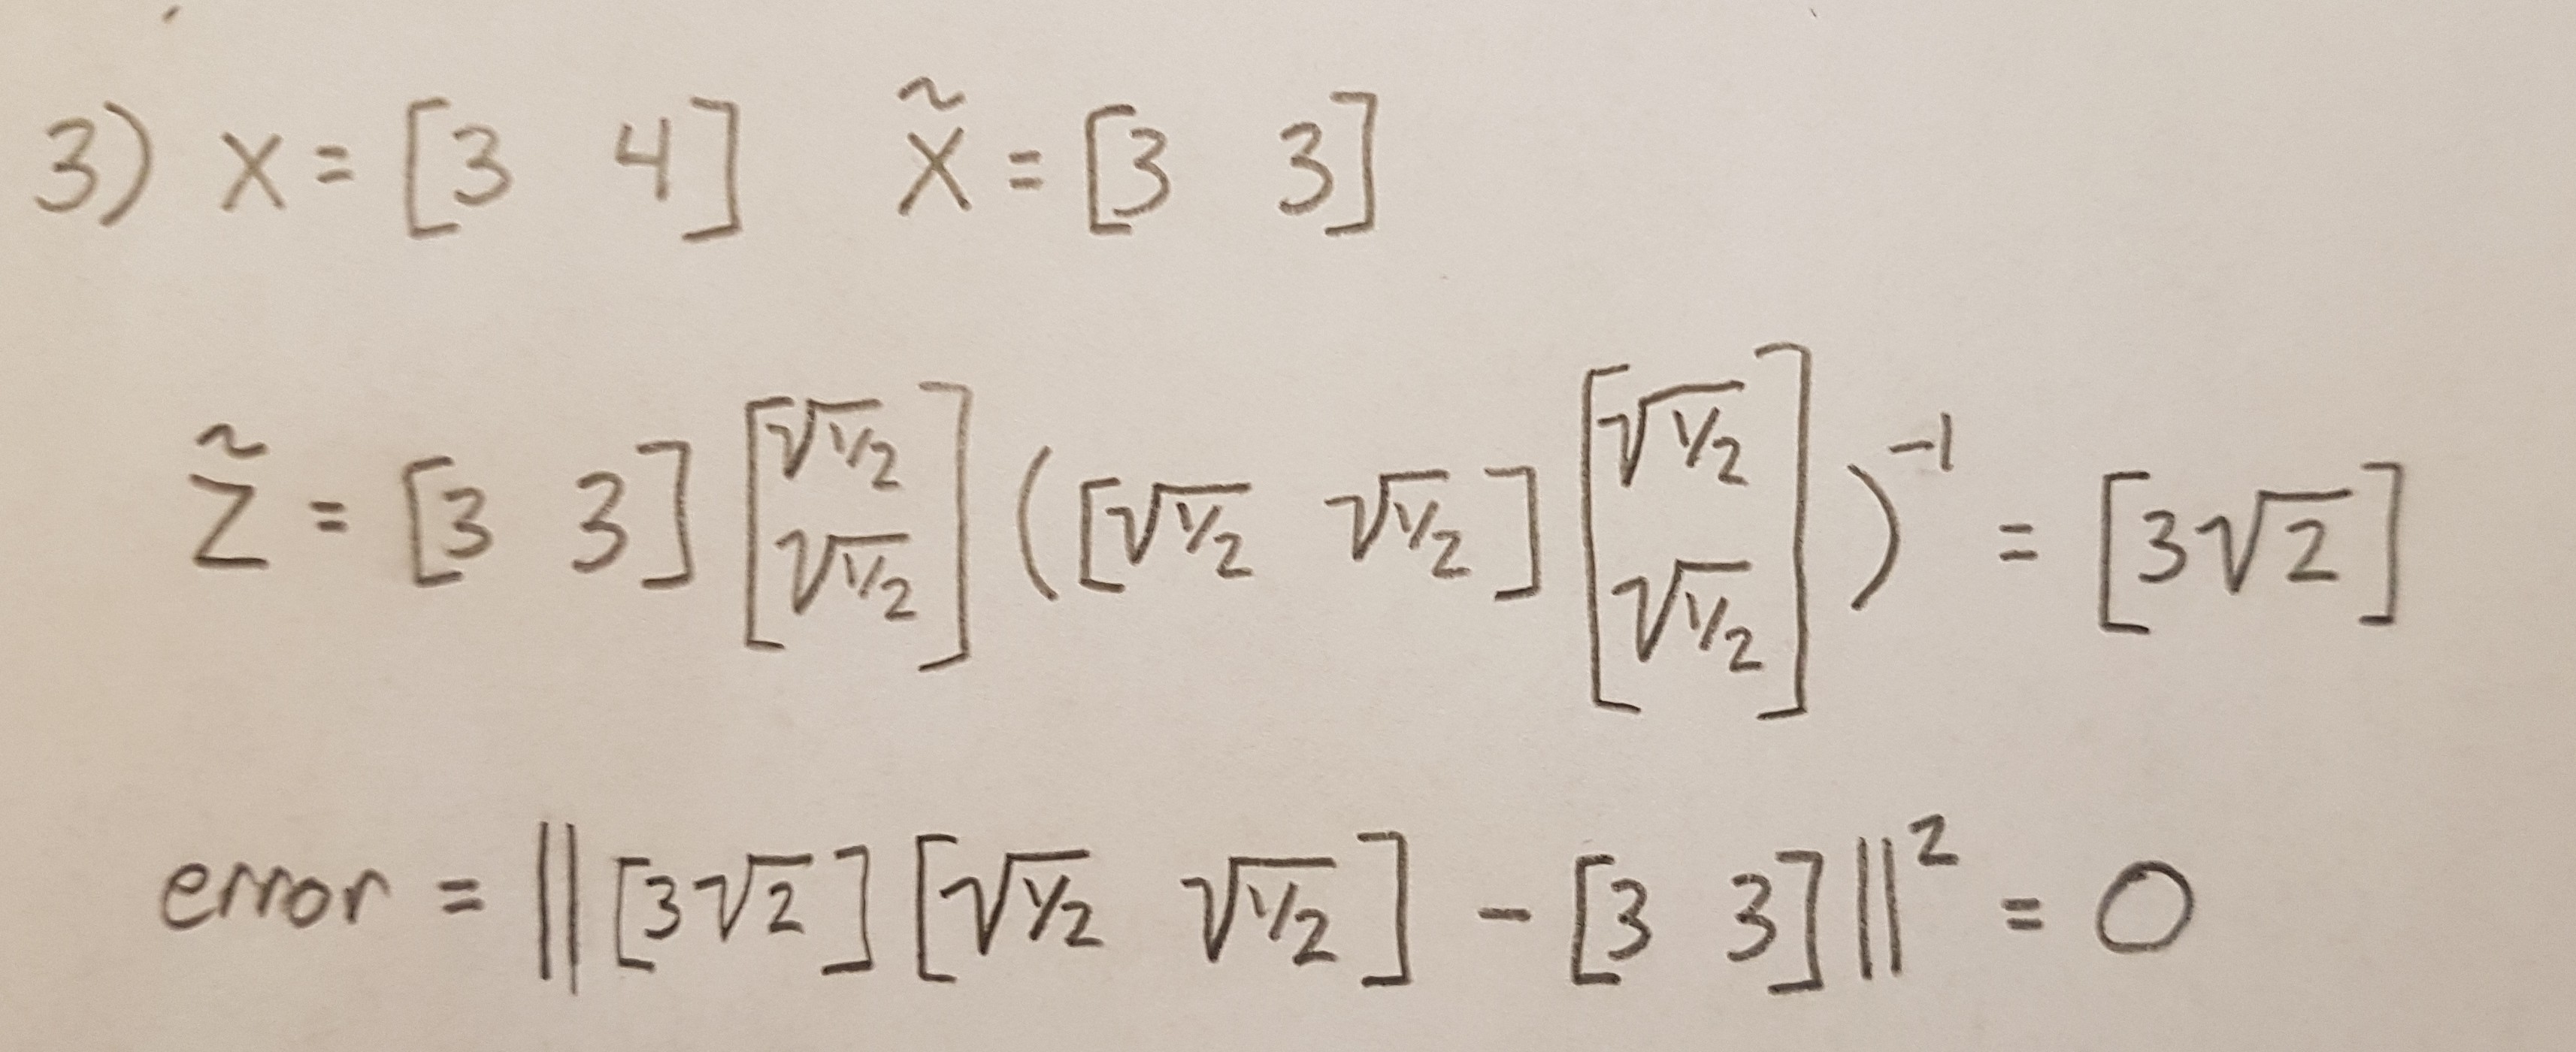 3) X = [3 4] X̃ = [3 3]
Z̃ = [3 3] [√1/2 √1/2] ([√1/2 √1/2] [√1/2 √1/2])⁻¹ = [3√2]
error = ||[3√2] [√1/2 √1/2] - [3 3]||² = 0